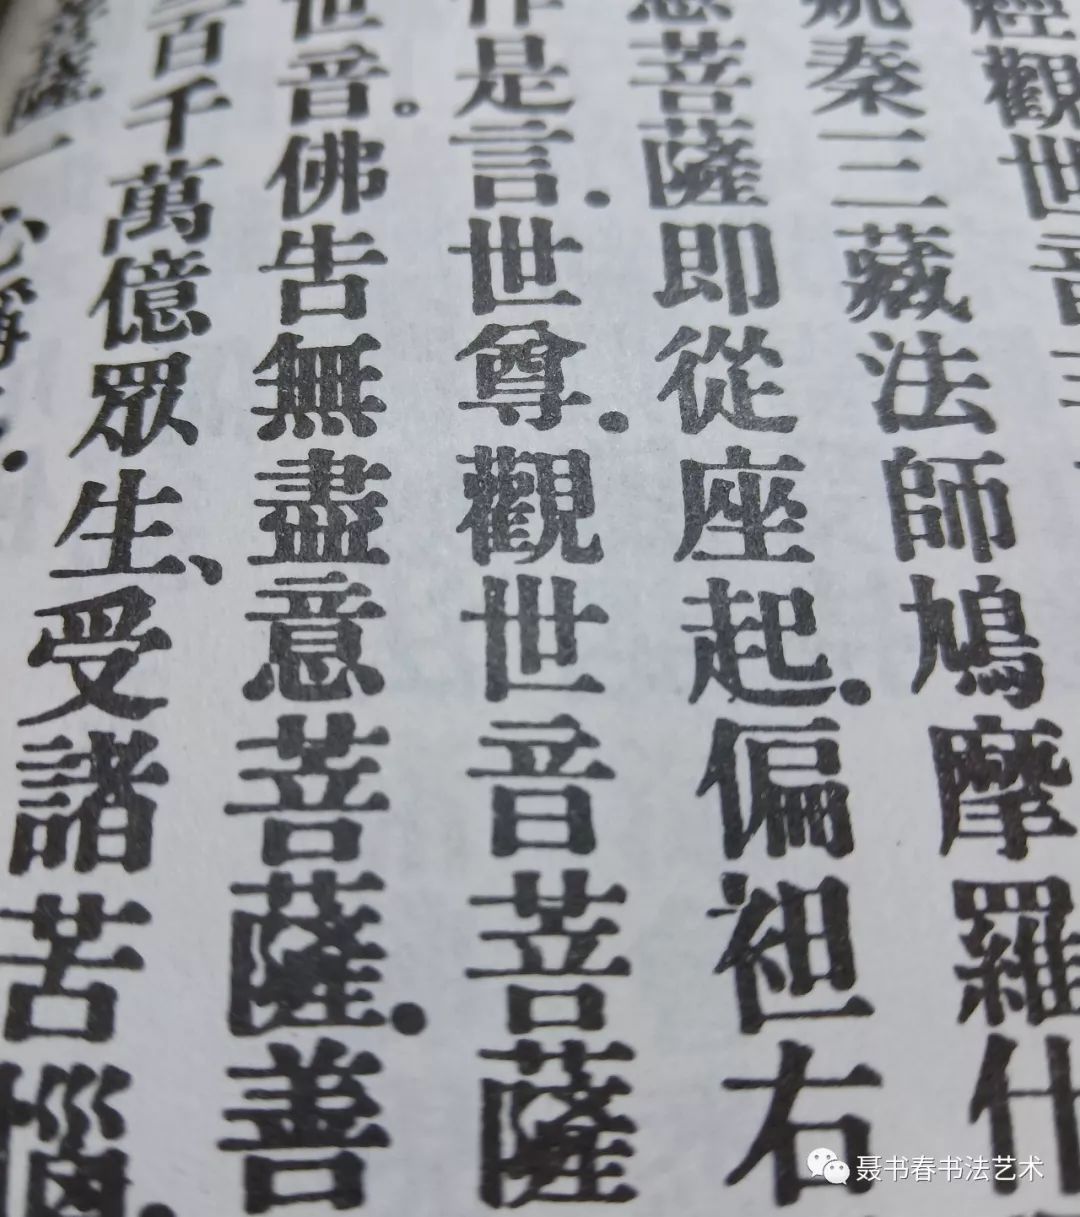 經觀世音
姚秦三藏法師鳩摩羅什
意菩薩即從座起.偏袒右
作是言.世尊.觀世音菩薩
世音.佛告無盡意菩薩.善
百千萬億眾生、受諸苦惱.
音菩薩.一心稱
聂书春书法艺术